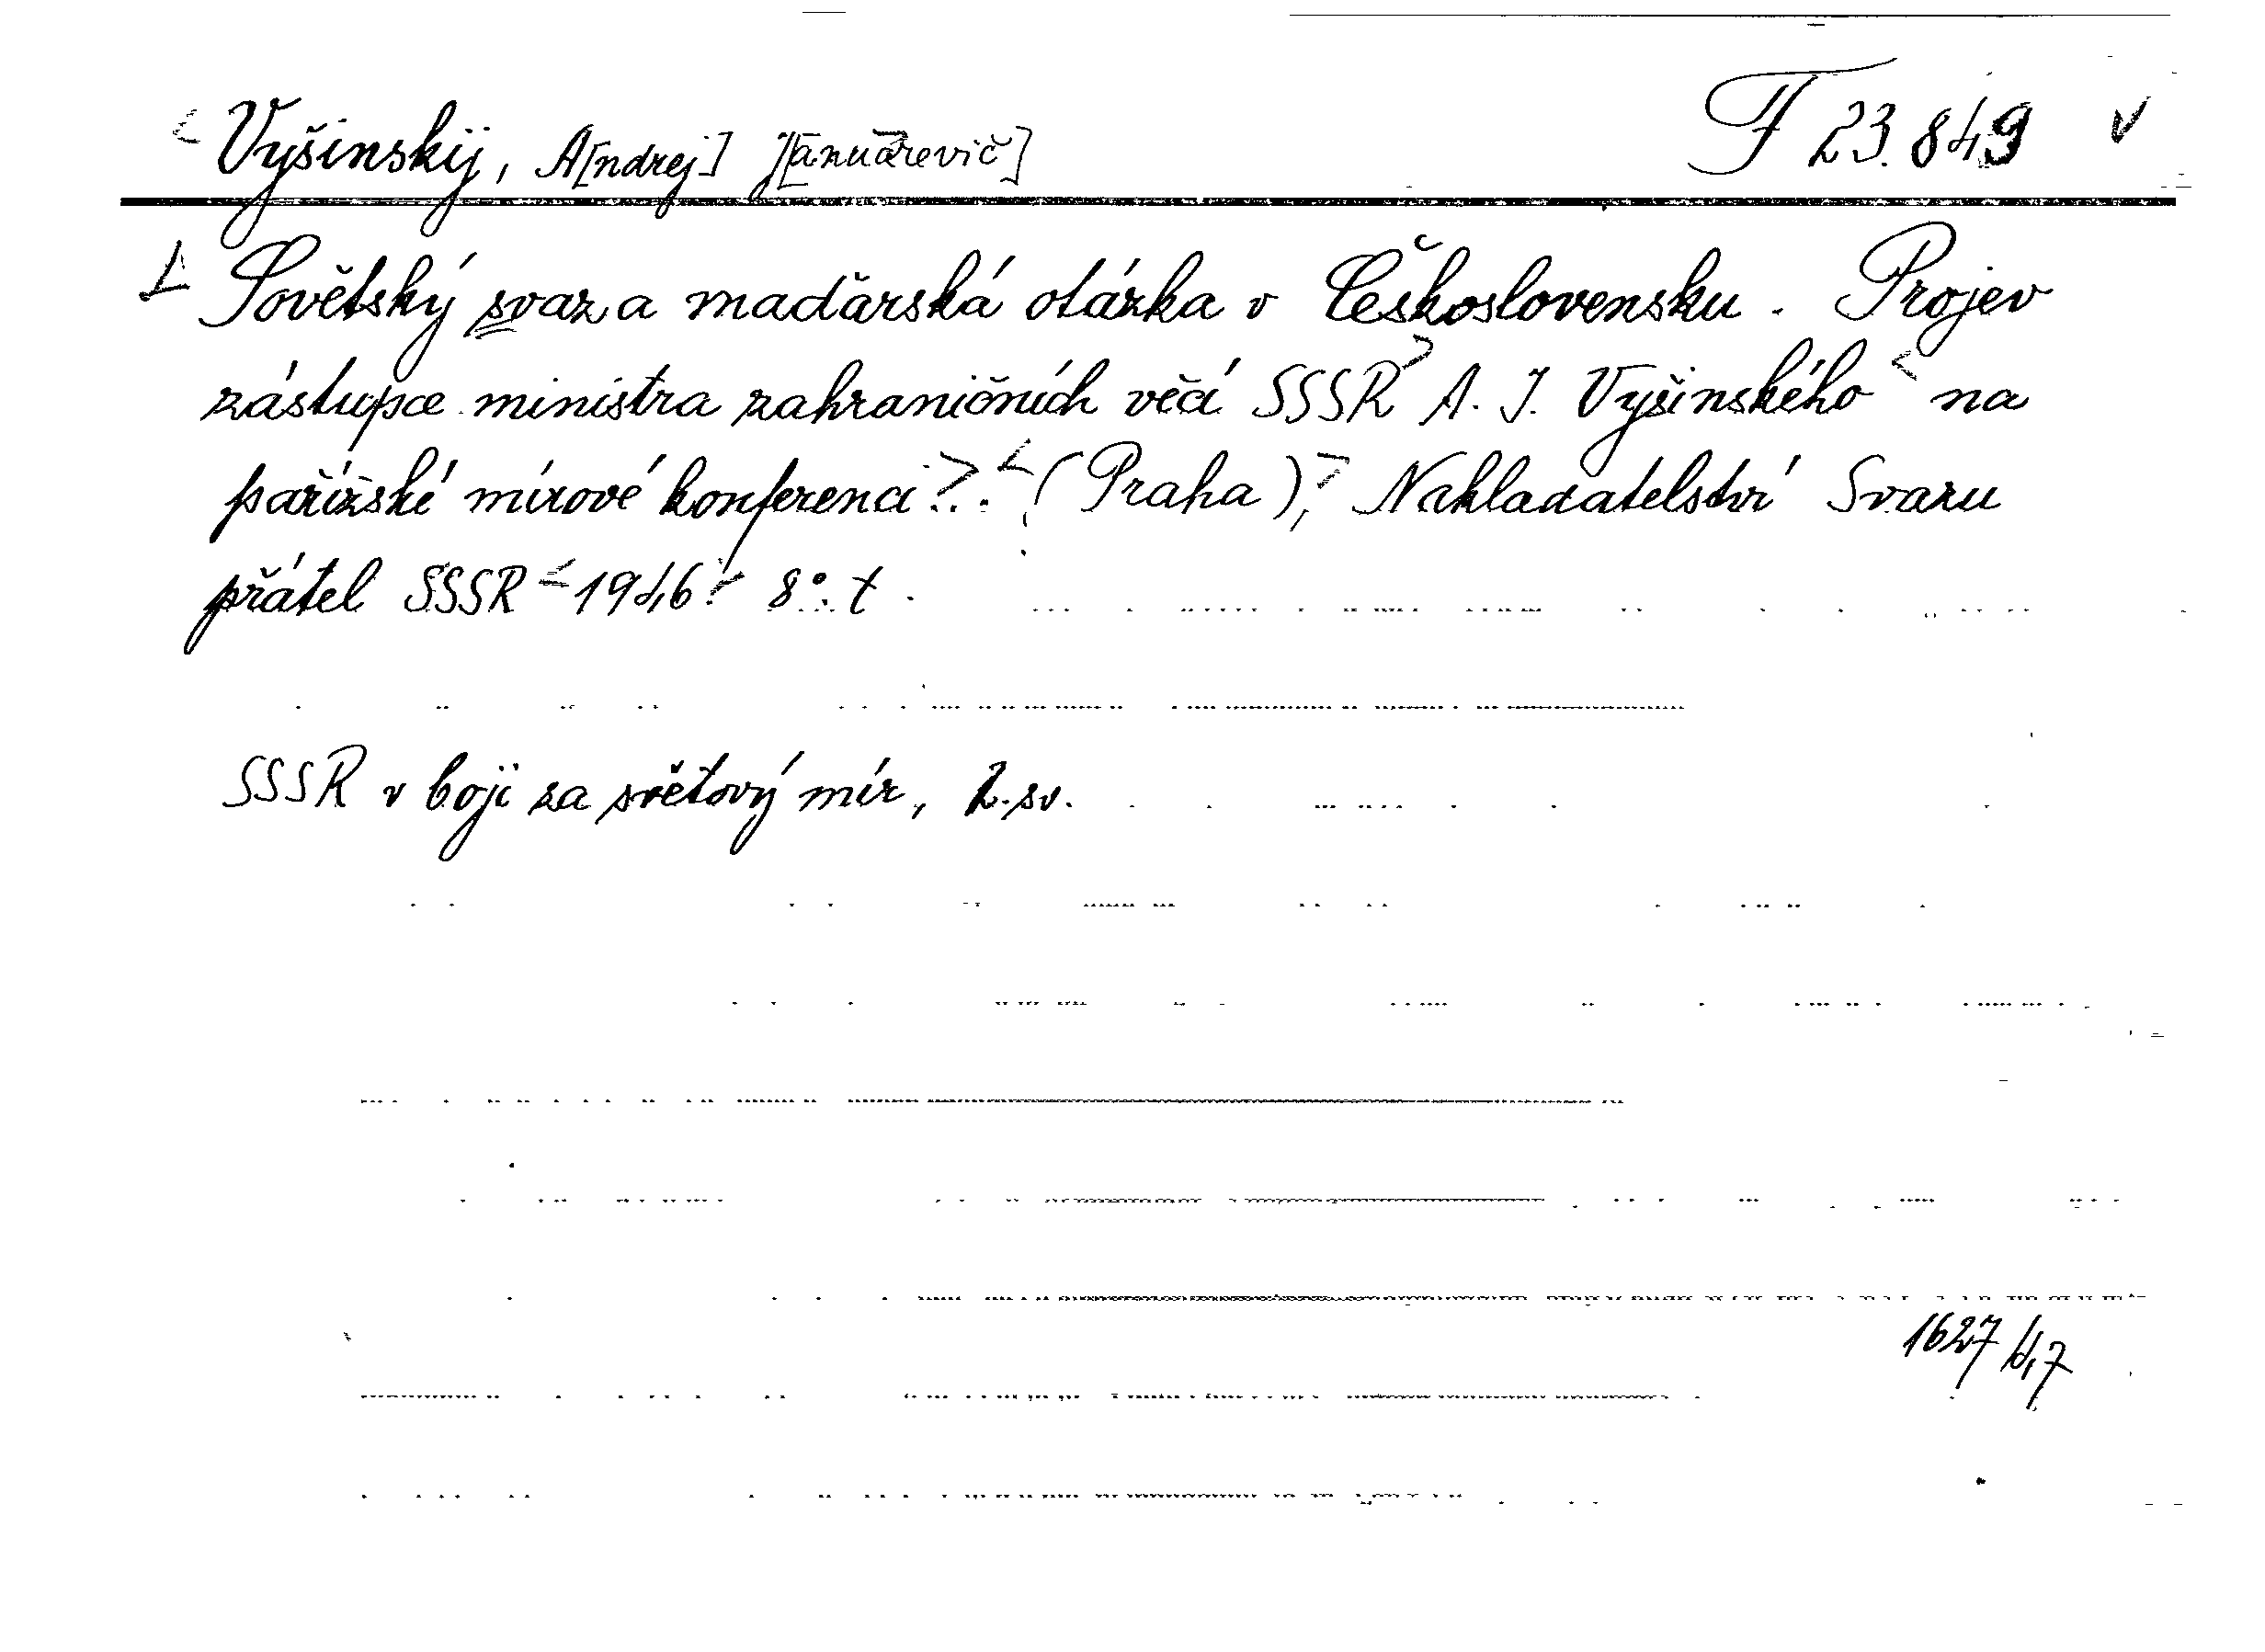 Vyšinskij, A[ndrej] J[anuarevič] F 23.849
Sovětský svaz a maďarská otázka v Československu. Projev
zástupce ministra zahraničních věcí SSSR A. J. Vyšinského na
pařížské mírové konferenci. (Praha), Nakladatelství Svazu
přátel SSSR 1946. 8°. t.
SSSR v boji za světový mír, 2. sv.
1627/47